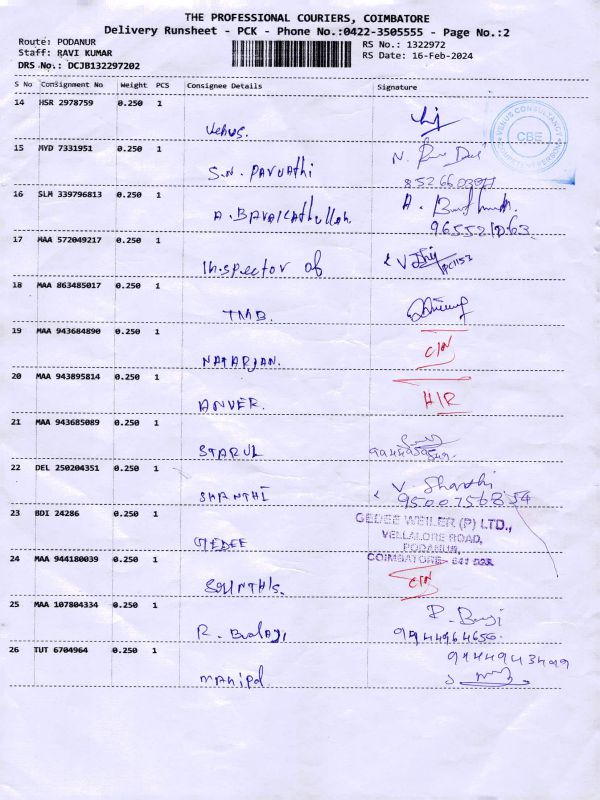 THE PROFESSIONAL COURIERS, COIMBATORE
Delivery Runsheet - PCK - Phone No.:0422-3505555 - Page No.:2
Route: PODANUR
Staff: RAVI KUMAR
DRS No.: DCJB132297202
RS No.: 1322972
RS Date: 16-Feb-2024
S No Consignment No Weight PCS Consignee Details Signature
14 HSR 2978759 0.250 1
Venus.
VENUS CONSULTANCY
CBE
15 MYD 7331951 0.250 1
S.N. PARVATHI
16 SLM 339796813 0.250 1
A.
17 MAA 572049217 0.250 1
Inspector of
PC1153
18 MAA 863485017 0.250 1
TMB.
19 MAA 943684890 0.250 1
NATARJAN.
C/N
20 MAA 943895814 0.250 1
ANVER.
H/R
21 MAA 943685089 0.250 1
22 DEL 250204351 0.250 1
SHANTHI
V Shanthi
9500756854
23 BDI 24286 0.250 1
GEDEE
GEDEE WEILER (P) LTD.,
VELLALORE ROAD,
PODANUR,
COIMBATORE- 641 023.
24 MAA 944180039 0.250 1
C/N
25 MAA 107804334 0.250 1
R. Balaji
9944964656
26 TUT 6704964 0.250 1
9444943499